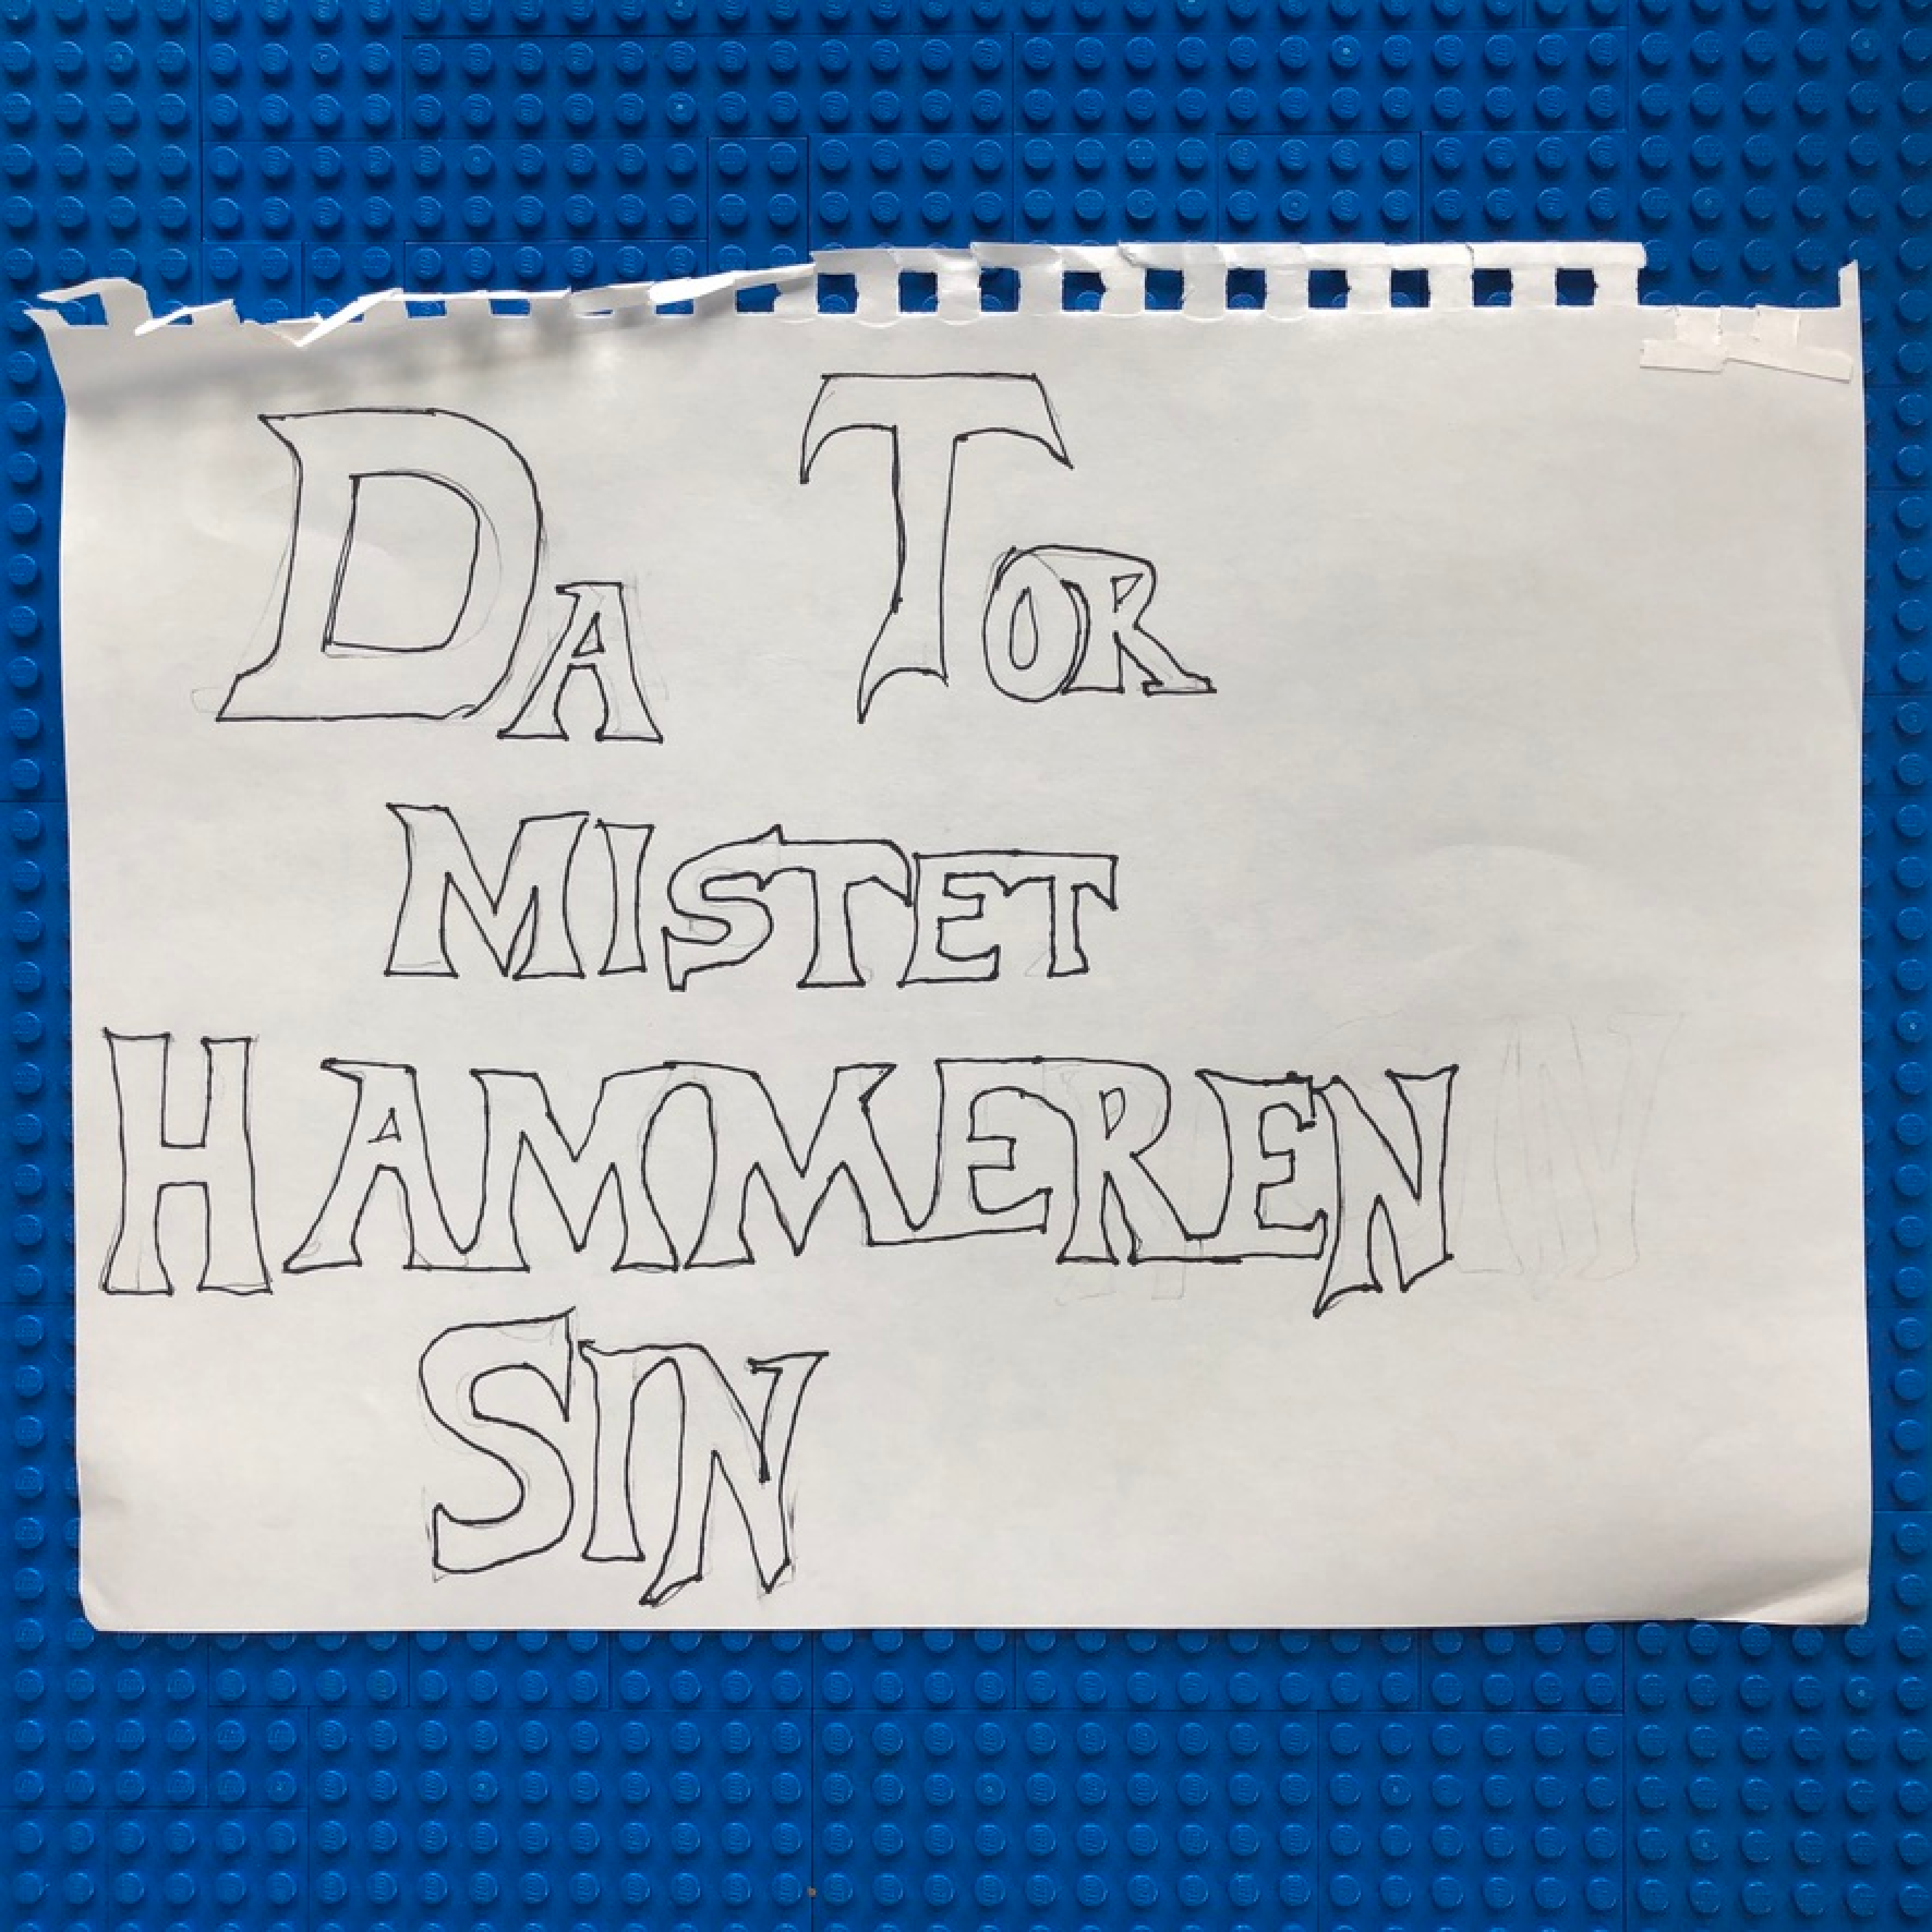 DA TOR
MISTET
HAMMEREN
SIN